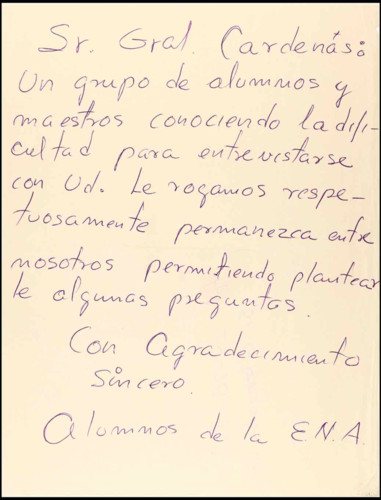 Sr. Gral. Cardenás:
Un grupo de alumnos y
maestros conociendo la difi-
cultad para entrevistarse
con Ud. Le rogamos respe-
tuosamente permanezca entre
nosotros permitiendo plantear
le algunas preguntas.
Con Agradecimiento
Sincero.
Alumnos de la E.N.A.